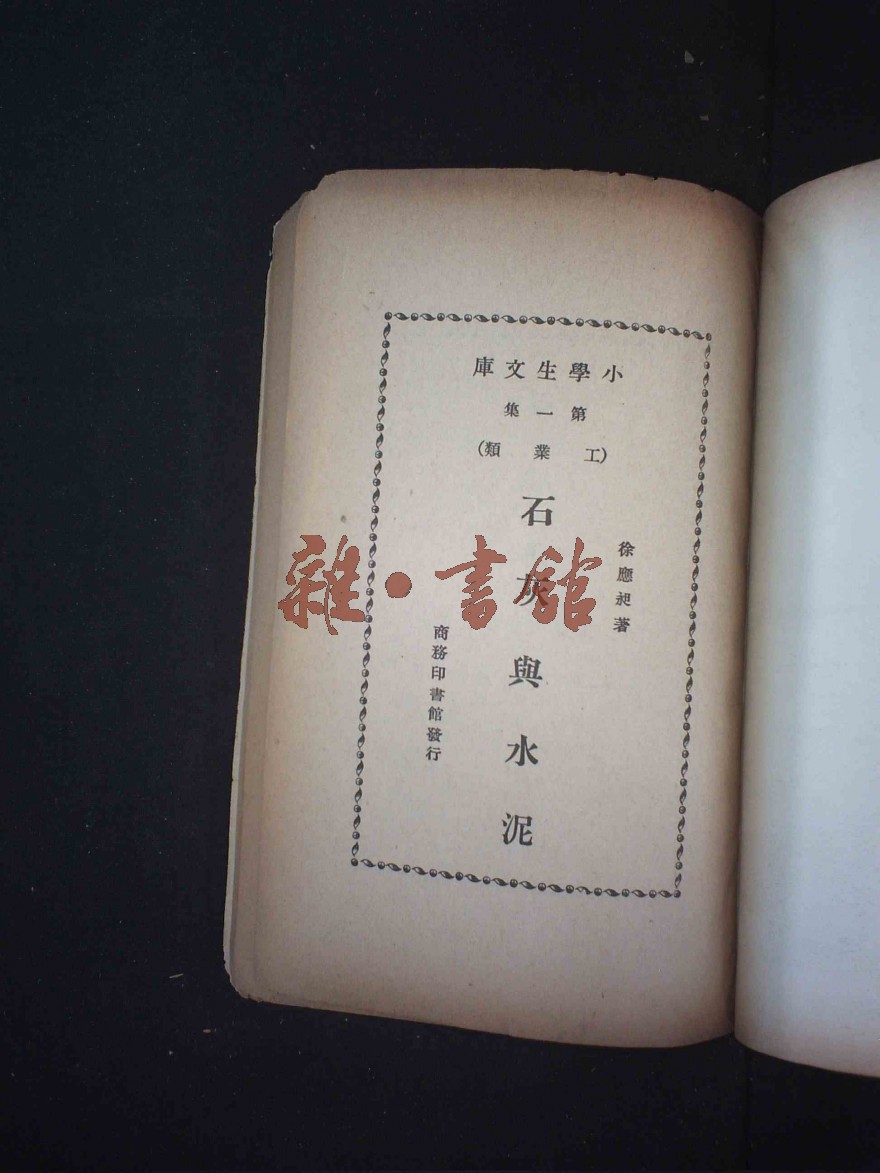 小學生文庫
第一集
(工業類)
徐應昶著
石灰與水泥
商務印書館發行
雜·書館